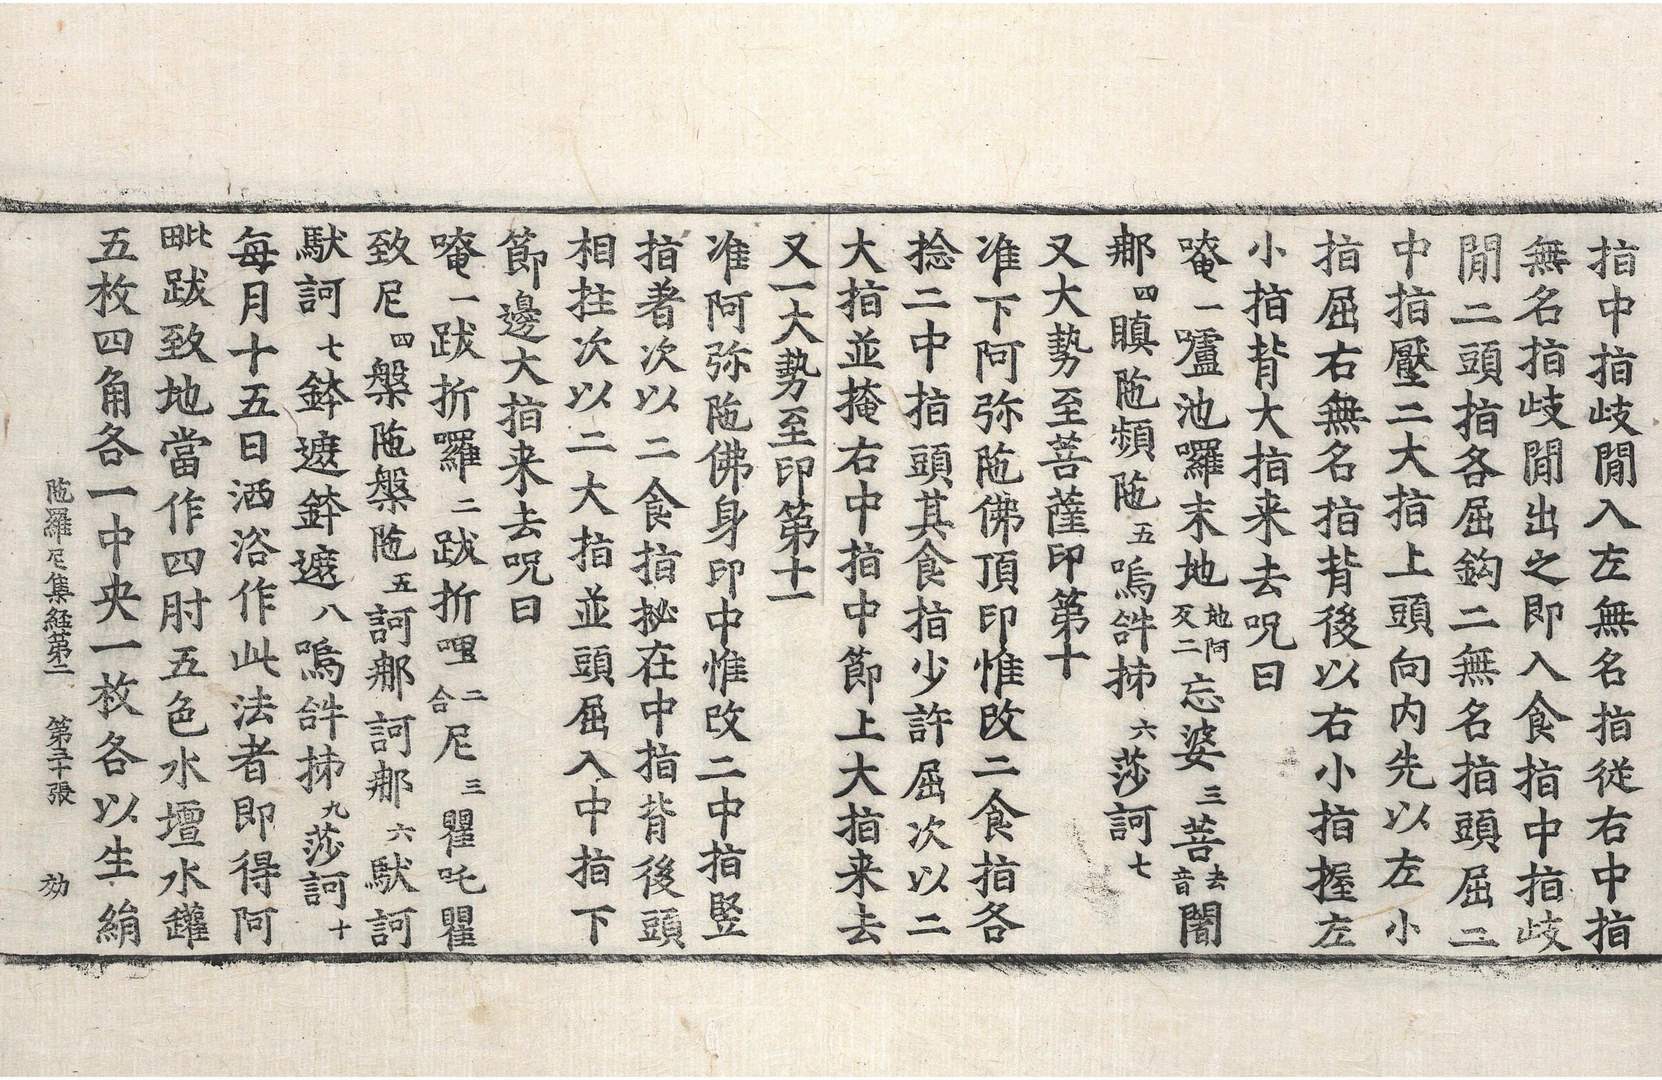 指中指歧閒入左無名指從右中指
無名指歧閒出之即入食指中指歧
閒二頭指各屈鈎二無名指頭屈二
中指壓二大指上頭向内先以左小
指屈右無名指背後以右小指握左
小指背大指来去呪曰
唵一嚧池囉末地地阿反二忘婆三菩去音闇
那四瞋陁頻陁五嗚𤙖抹六莎訶七
又大勢至菩薩印第十
准下阿弥陁佛頂印惟改二食指各
捻二中指頭其食指少許屈次以二
大指並掩右中指中節上大指来去
又一大勢至印第十一
准阿弥陁佛身印中惟改二中指竪
指著次以二食指拟在中指背後頭
相拄次以二大指並頭屈入中指下
節邊大指来去呪曰
唵一跋折囉二跋折哩二合尼三瞿吒瞿
致尼四槃陁槃陁五訶那訶那六馱訶
馱訶七鉢遮鉢遮八嗚𤙖抹九莎訶十
每月十五日洒浴作此法者即得阿
毗跋致地當作四肘五色水壇水罐
五枚四角各一中央一枚各以生絹
陁羅尼集經第二 第三十張 効